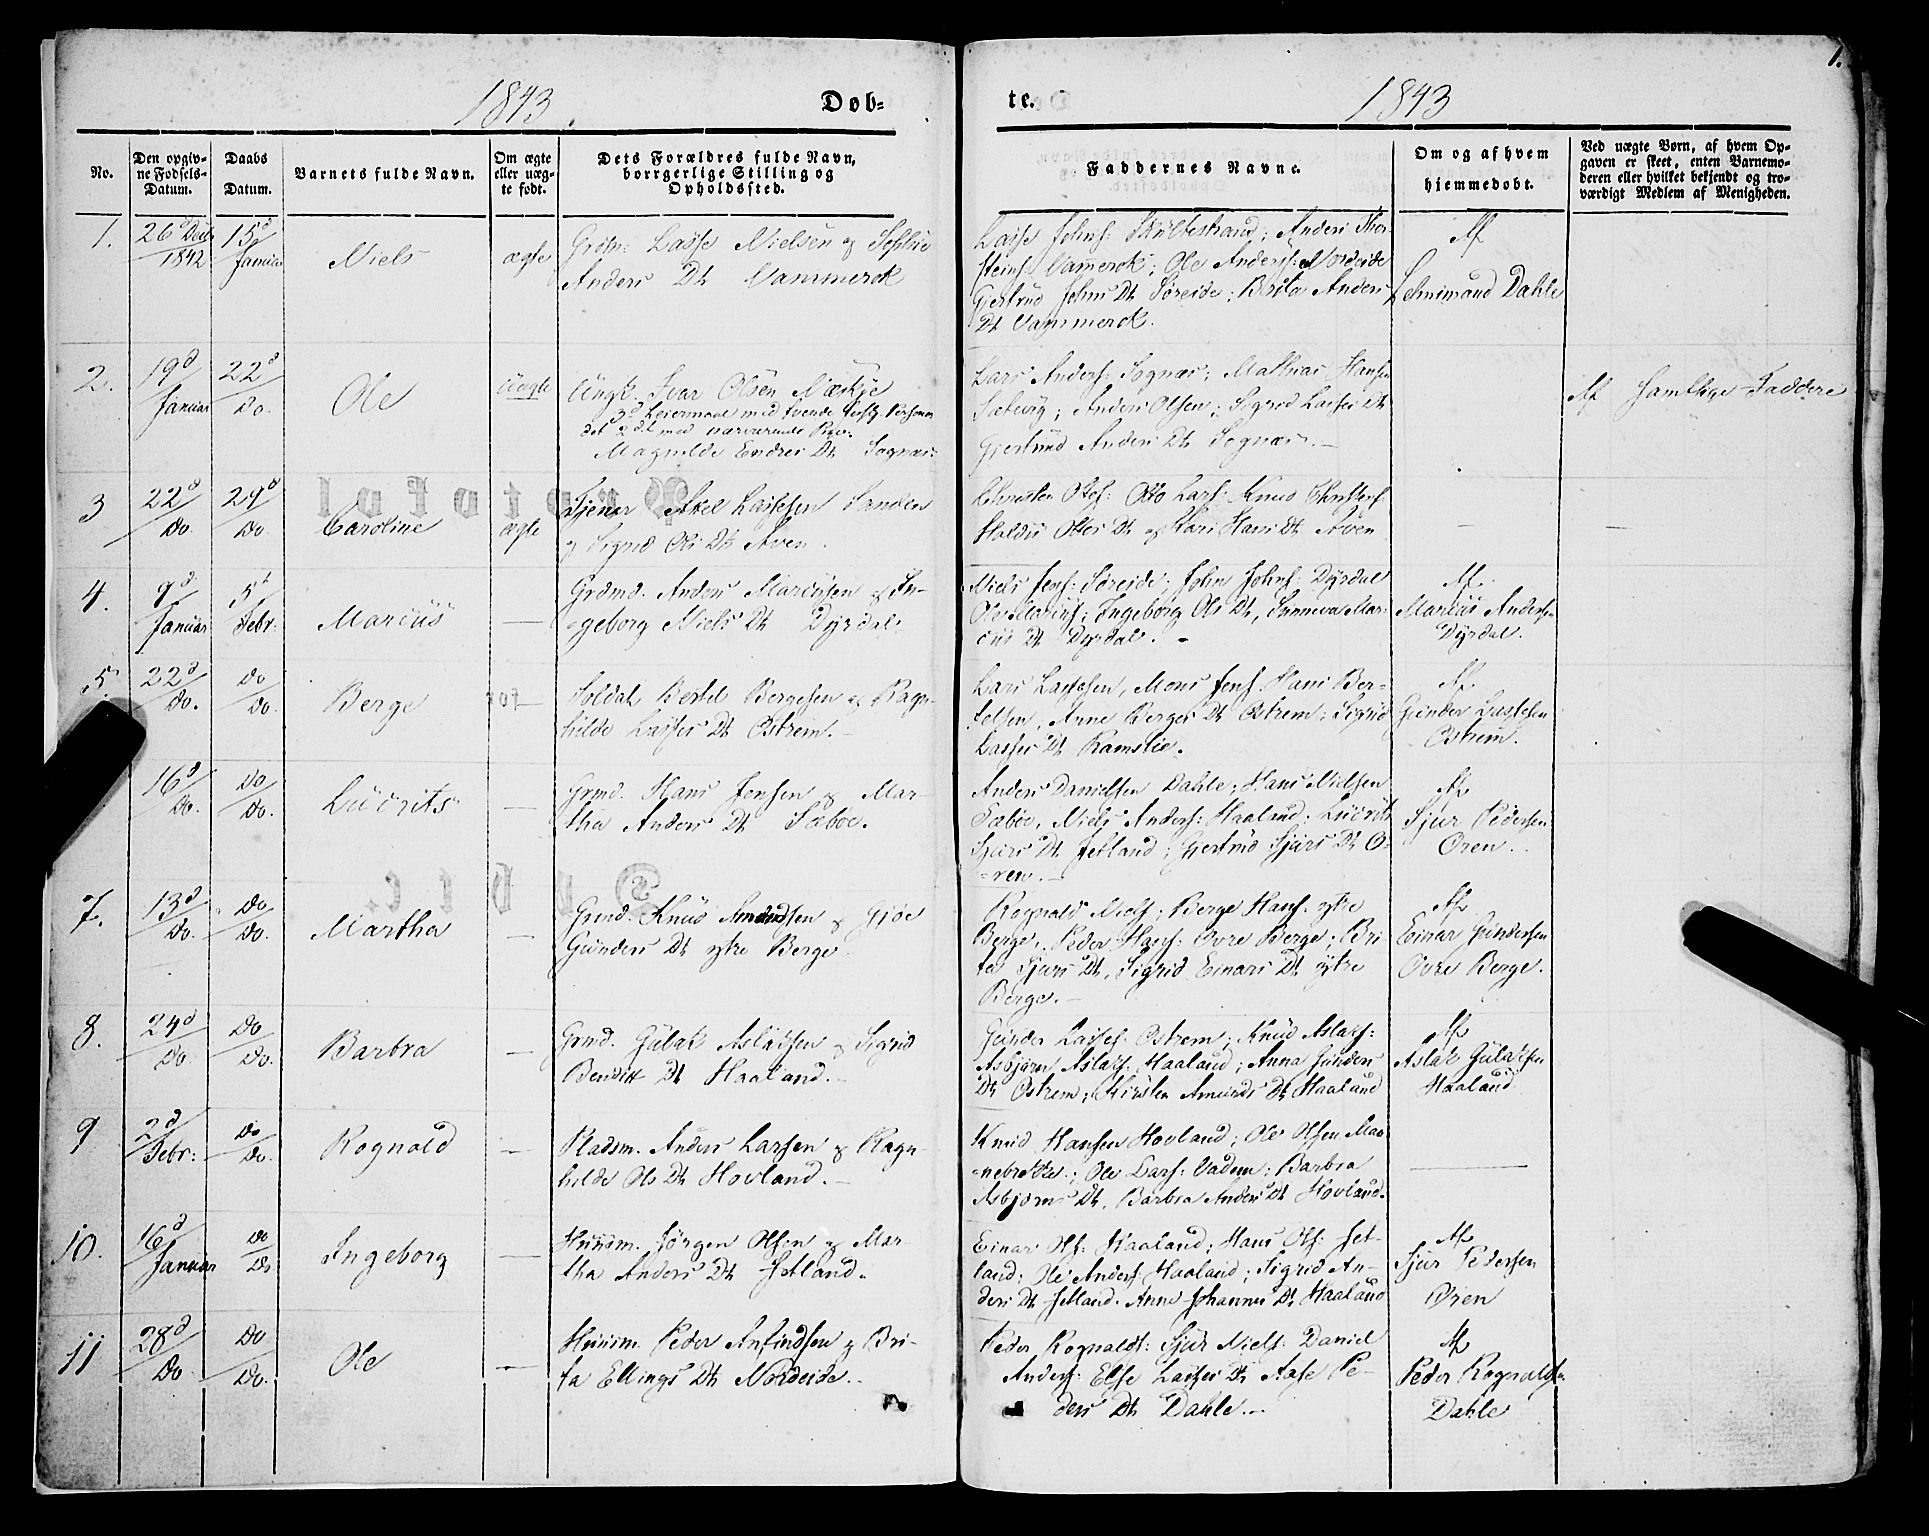 1843. Døb-
te. 1843
1.
No.
Den opgiv-
ne Fødsels-
Datum.
Daabs
Datum.
Barnets fulde Navn.
Om ægte
eller uæg-
te født.
Dets Forældres fulde Navn,
borrgerlige Stilling og
Opholdssted.
Faddernes Navne.
Om og af hvem
hiemmedøbt.
Ved uægte Børn, af hvem Op-
gaven er skeet, enten Barnemo-
deren eller hvilket bekjendt og tro-
værdigt Medlem af Menigheden.
1.
26d Decbr
1842
15d
Januar
Niels
ægte
Lasse Nielsen og Sophie
Anders Dt Vammerck
Lasse Johns: Anders Thor-
steins: Vammerck; Ole Anders: Nordeide
Gjertrud Johns Dt Søreide; Brita Anders
Dt Vammerck.
Af
Dahle
2.
19d
Januar
22d
Do.
Ole
uægte
Ungk. Ivar Olsen
3d Leiermaal med tvende
det 2det med nærværende
Magnilde Endres Dt Sognæs.
Lars Anders: Sognæs; Mathias Hansen
Sætevig; Anders Olsen; Sigrid Lasses Dt
Gjertrud Anders Dt Sognæs.
Af samtlige Faddere
3
22d
Do.
29d
Do.
Caroline
ægte
Tjener Axel Lassesen Sanden
og Sigrid Ols Dt Aven.
Christen Otes: Otto Lars: Knud Christens
Otters Dt og Kari Hans Dt Aven
4.
9d
Januar
5t
Febr:
Marcus
—
Grdmd. Anders Marcussen og In-
geborg Niels Dt Dyrdal
Niels Jens: Søreide; John Johns: Dyrdal
Ole Ingeborg Ols Dt, Sunneva Mar-
cus Dt Dyrdal.
Af
Marcus Andersen
Dyrdal.
5.
22d
Do.
Do
Do.
Berge
—
Soldat Bertel Bergesen og Ragn-
hilde Lasses Dt Ostrem.
Lars Lassesen, Mons Jens: Hans Ber-
telsen, Anne Berges Dt Ostrem; Sigrid
Lasses Dt Ramslie.
Af
Gunder Lassesen
Ostrem.
16d
Do.
Do
Do.
Luvrits
—
Grmd. Hans Jensen og Mar-
tha Anders Dt Sæbøe.
Anders Danielsen Dahle; Hans Nielsen
Sæbøe, Niels Anders: Haaland; Luvrits
Sjurs Dt Jetland; Gjertrud Sjurs Dt O-
ren.
Af
Sjur Pedersen
Oren.
7.
13d
Do.
Do
Do.
Martha
—
Grmd. Knud Amundsen og Gjøe
Gunders Dt ytre Berge
Rognald Niels; Berge Hans: ytre
Berge, Peder Hans: Øvre Berge; Bri-
te Sjurs Dt, Sigrid Einars Dt ytre
Berge.
Af
Einar Gundersen
Ovre Berge.
8.
24d
Do
Do
Do.
Barbra
—
Grmd. Gulak Aslaksen og Sigrid
Bendix Dt Haaland.
Gunder Lasses: Ostrem; Knud Aslaks:
Asbjørn Aslaks: Haaland; Anna Gunders
Dt Ostrem; Kirsten Amunds Dt Haaland
Af
Aslak Gulaksen
Haaland
9
2d
Febr:
Do
Do.
Rognald
—
Pladsm. Anders Larsen og Ragn-
hilde Ols Dt Hovland.
Knud Hansen Hovland; Ole Olsen Man-
nebrotte; Ole Lars: Vadem; Barbra
Asbjørns Dt, Barbra Anders Dt Hovland.
10.
16d
Januar
Do
Do
Ingeborg
—
Huusm. Jørgen Olsen og Mar-
tha Anders Dt Jetland.
Einar Ols: Haaland; Hans Ols: Jet-
land; Ole Anders: Haaland; Sigrid An-
ders Dt Jetland. Anne Johannes Dt Haaland
Af
Sjur Pedersen
Øren
11
28d
Do
Do
Do.
Ole
—
Huusm. Peder Anfindsen og Bri-
ta Ellings Dt Nordeide.
Peder Rognalds: Sjur Niels: Daniel
Anders: Else Lasses Dt Aase Pe-
ders Dt Dahle.
Af
Peder Rognaldsen
Dahle